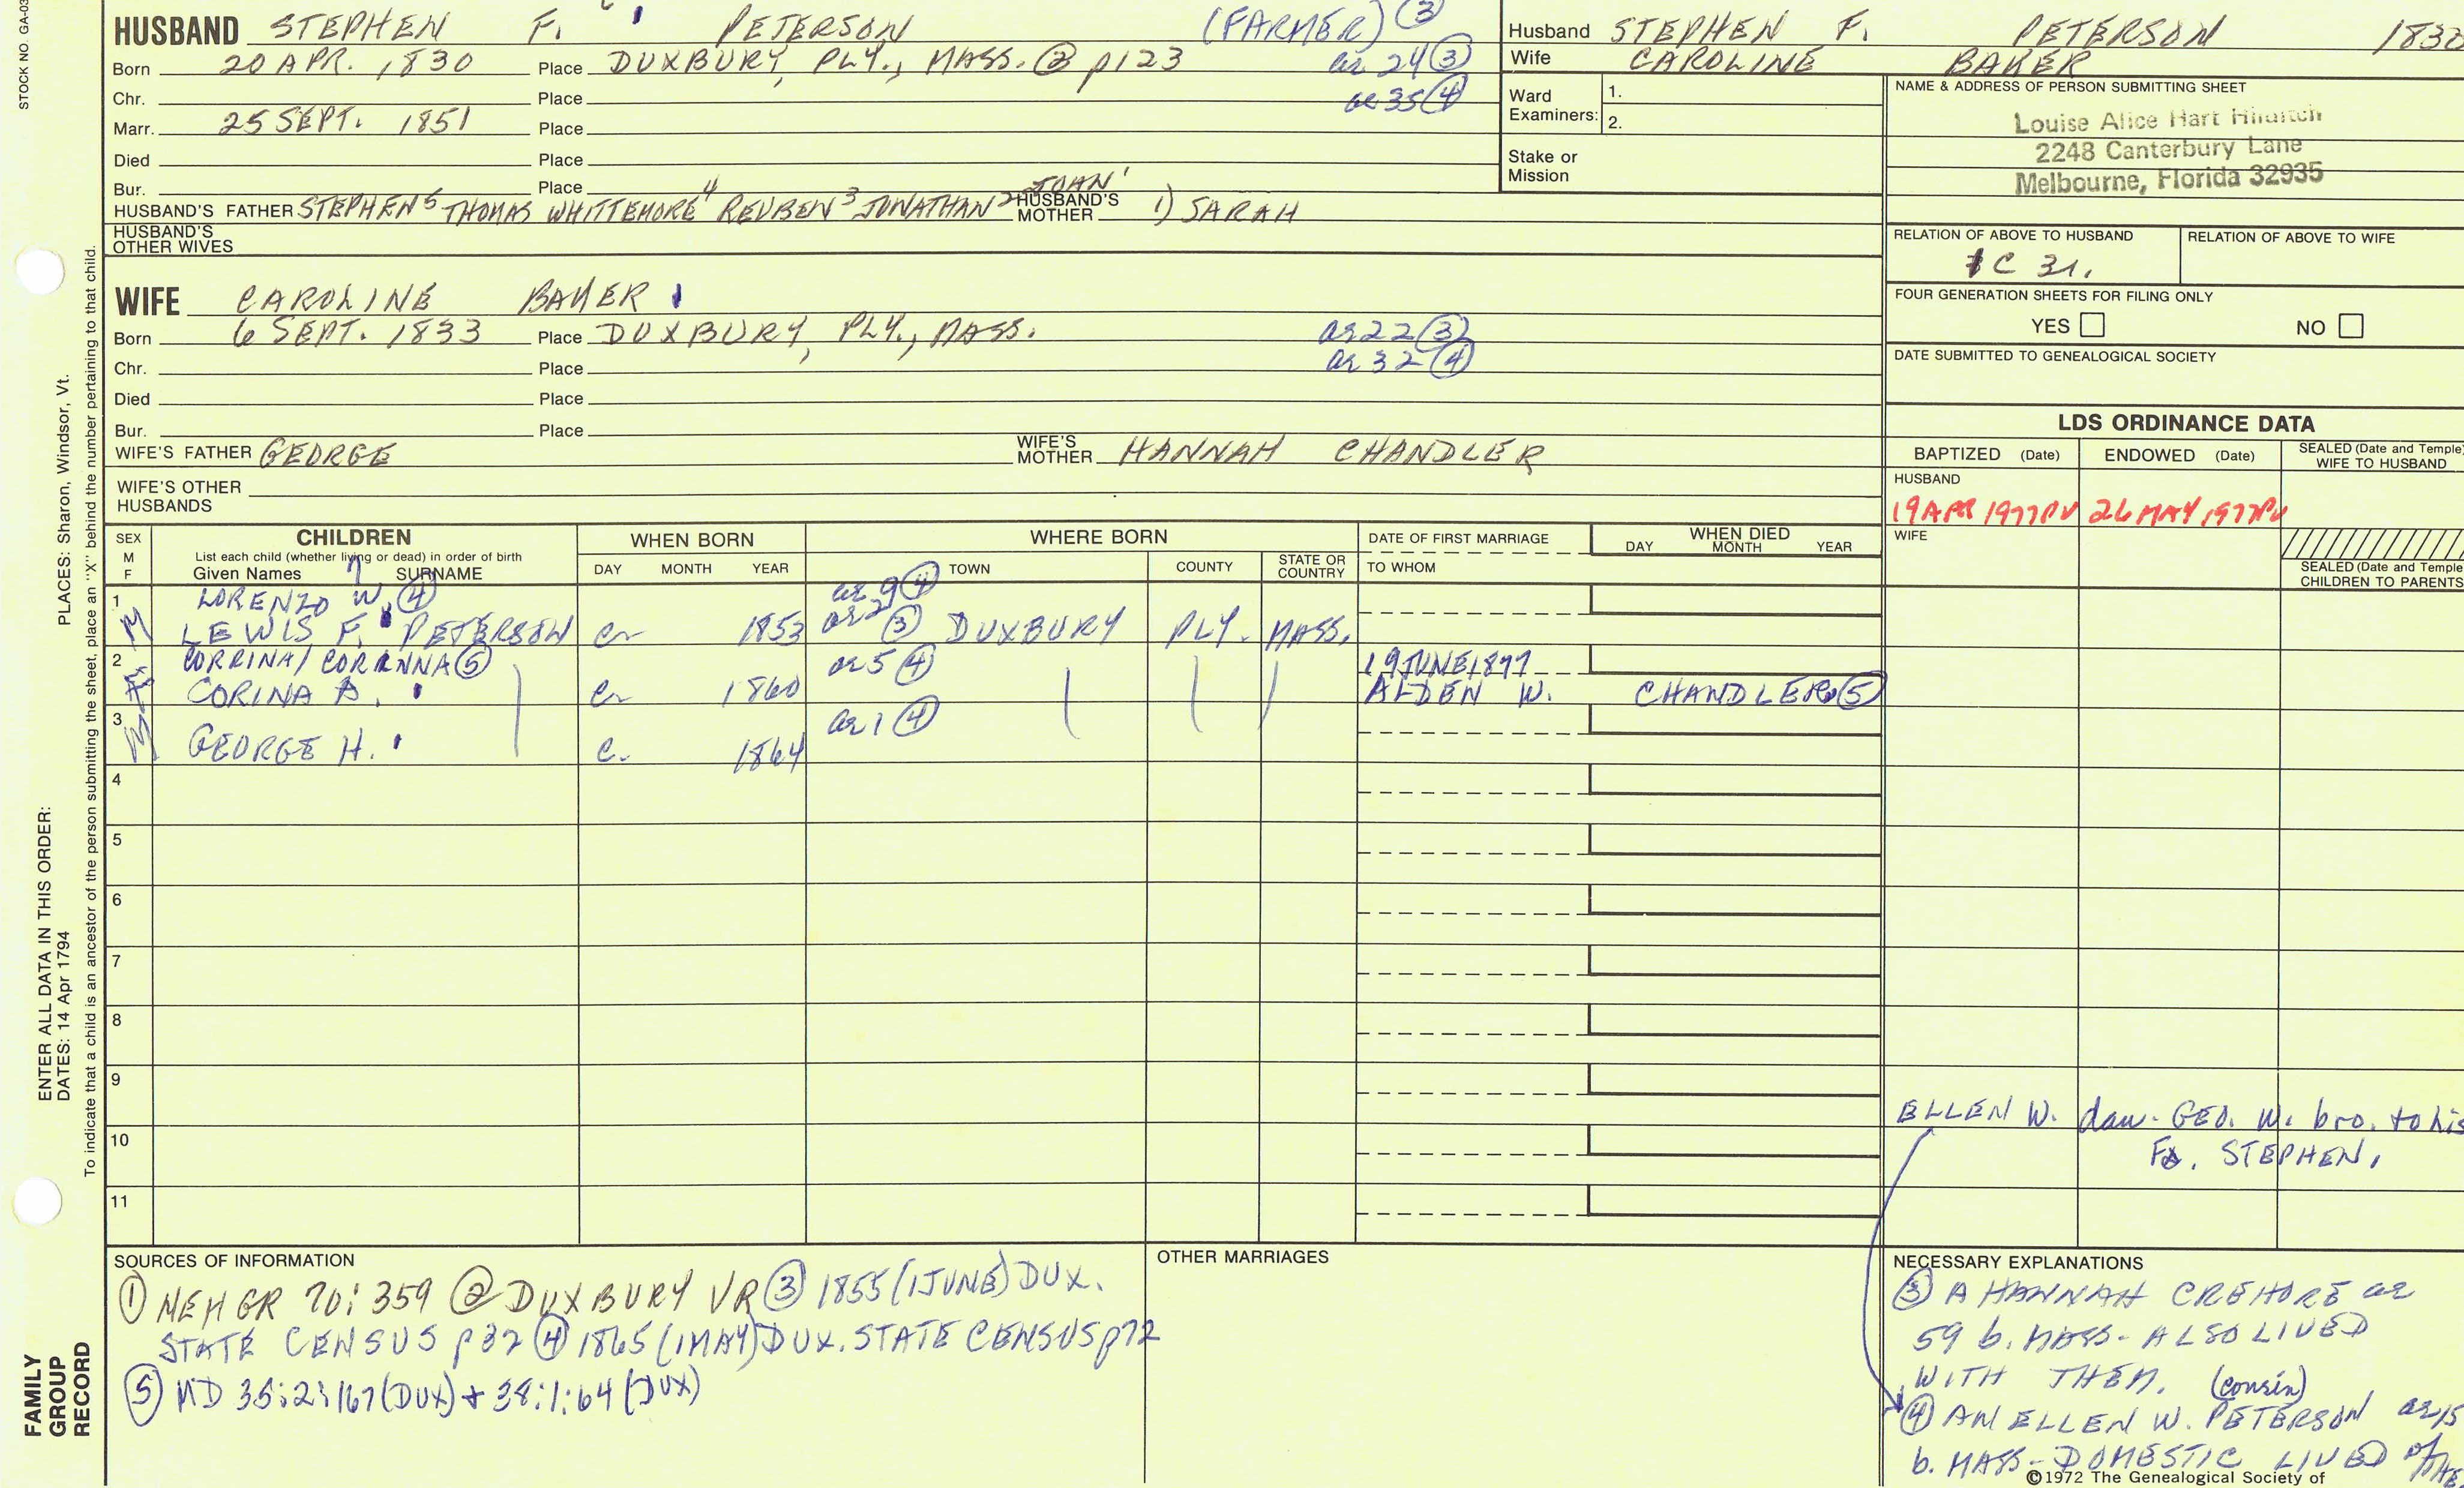 STOCK NO. GA-03
HUSBAND STEPHEN F. PETERSON (FARMER) ③
Born 20 APR. 1830 Place DUXBURY, PLY., MASS. ② p123 ae 24 ③
Chr. Place ae 35 ④
Marr. 25 SEPT. 1851 Place
Died Place
Bur. Place
HUSBAND'S FATHER STEPHEN5 THOMAS WHITTEMORE4 REUBEN3 JONATHAN2 JOHN1 HUSBAND'S MOTHER 1) SARAH
HUSBAND'S OTHER WIVES
Husband STEPHEN F. PETERSON
Wife CAROLINE BAKER
Ward Examiners: 1.
2.
Stake or Mission
NAME & ADDRESS OF PERSON SUBMITTING SHEET
Louise Alice Hart
2248 Canterbury Lane
Melbourne, Florida 32935
RELATION OF ABOVE TO HUSBAND RELATION OF ABOVE TO WIFE
FOUR GENERATION SHEETS FOR FILING ONLY
YES NO
DATE SUBMITTED TO GENEALOGICAL SOCIETY
WIFE CAROLINE BAKER
Born 6 SEPT. 1833 Place DUXBURY, PLY., MASS. ae 22 ③
Chr. Place ae 32 ④
Died Place
Bur. Place
WIFE'S FATHER GEORGE WIFE'S MOTHER HANNAH CHANDLER
WIFE'S OTHER HUSBANDS
LDS ORDINANCE DATA
BAPTIZED (Date) ENDOWED (Date) SEALED (Date and Temple) WIFE TO HUSBAND
HUSBAND
19 APR 1977 PV 26 MAY 1977 PV
WIFE
SEALED (Date and Temple) CHILDREN TO PARENTS
SEX M F CHILDREN WHEN BORN WHERE BORN DATE OF FIRST MARRIAGE WHEN DIED
List each child (whether living or dead) in order of birth
Given Names SURNAME DAY MONTH YEAR TOWN COUNTY STATE OR COUNTRY TO WHOM DAY MONTH YEAR
1 LORENZO W. ④ ae 9 ④
M LEWIS F. PETERSON c. 1853 ae 2 ③ DUXBURY PLY. MASS.
2 CORRINA/CORANNA ⑤ ae 5 ④ 19 JUNE 1877
CORINA A. c. 1860 ALDEN W. CHANDLER ⑤
3 ae 1 ④
M GEORGE H. c. 1864
4
5
6
7
8
9
10
11
ELLEN W. dau. GEO. W. bro. to his
Fa. STEPHEN,
PLACES: Sharon, Windsor, Vt.
ENTER ALL DATA IN THIS ORDER:
DATES: 14 Apr 1794
To indicate that a child is an ancestor of the person submitting the sheet, place an "X" behind the number pertaining to that child.
FAMILY GROUP RECORD
SOURCES OF INFORMATION
① NEHGR 70:359 ② DUXBURY VR ③ 1855 (1 JUNE) DUX.
STATE CENSUS p 32 ④ 1865 (1 MAY) DUX. STATE CENSUS p72
⑤ MD 35:2:167 (DUX) + 38:1:64 (DUX)
OTHER MARRIAGES
NECESSARY EXPLANATIONS
③ A HANNAH CREHORE ae
59 b. MASS - ALSO LIVED
WITH THEM. (cousin)
④ AN ELLEN W. PETERSON ae 15
b. MASS - DOMESTIC LIVED
©1972 The Genealogical Society of